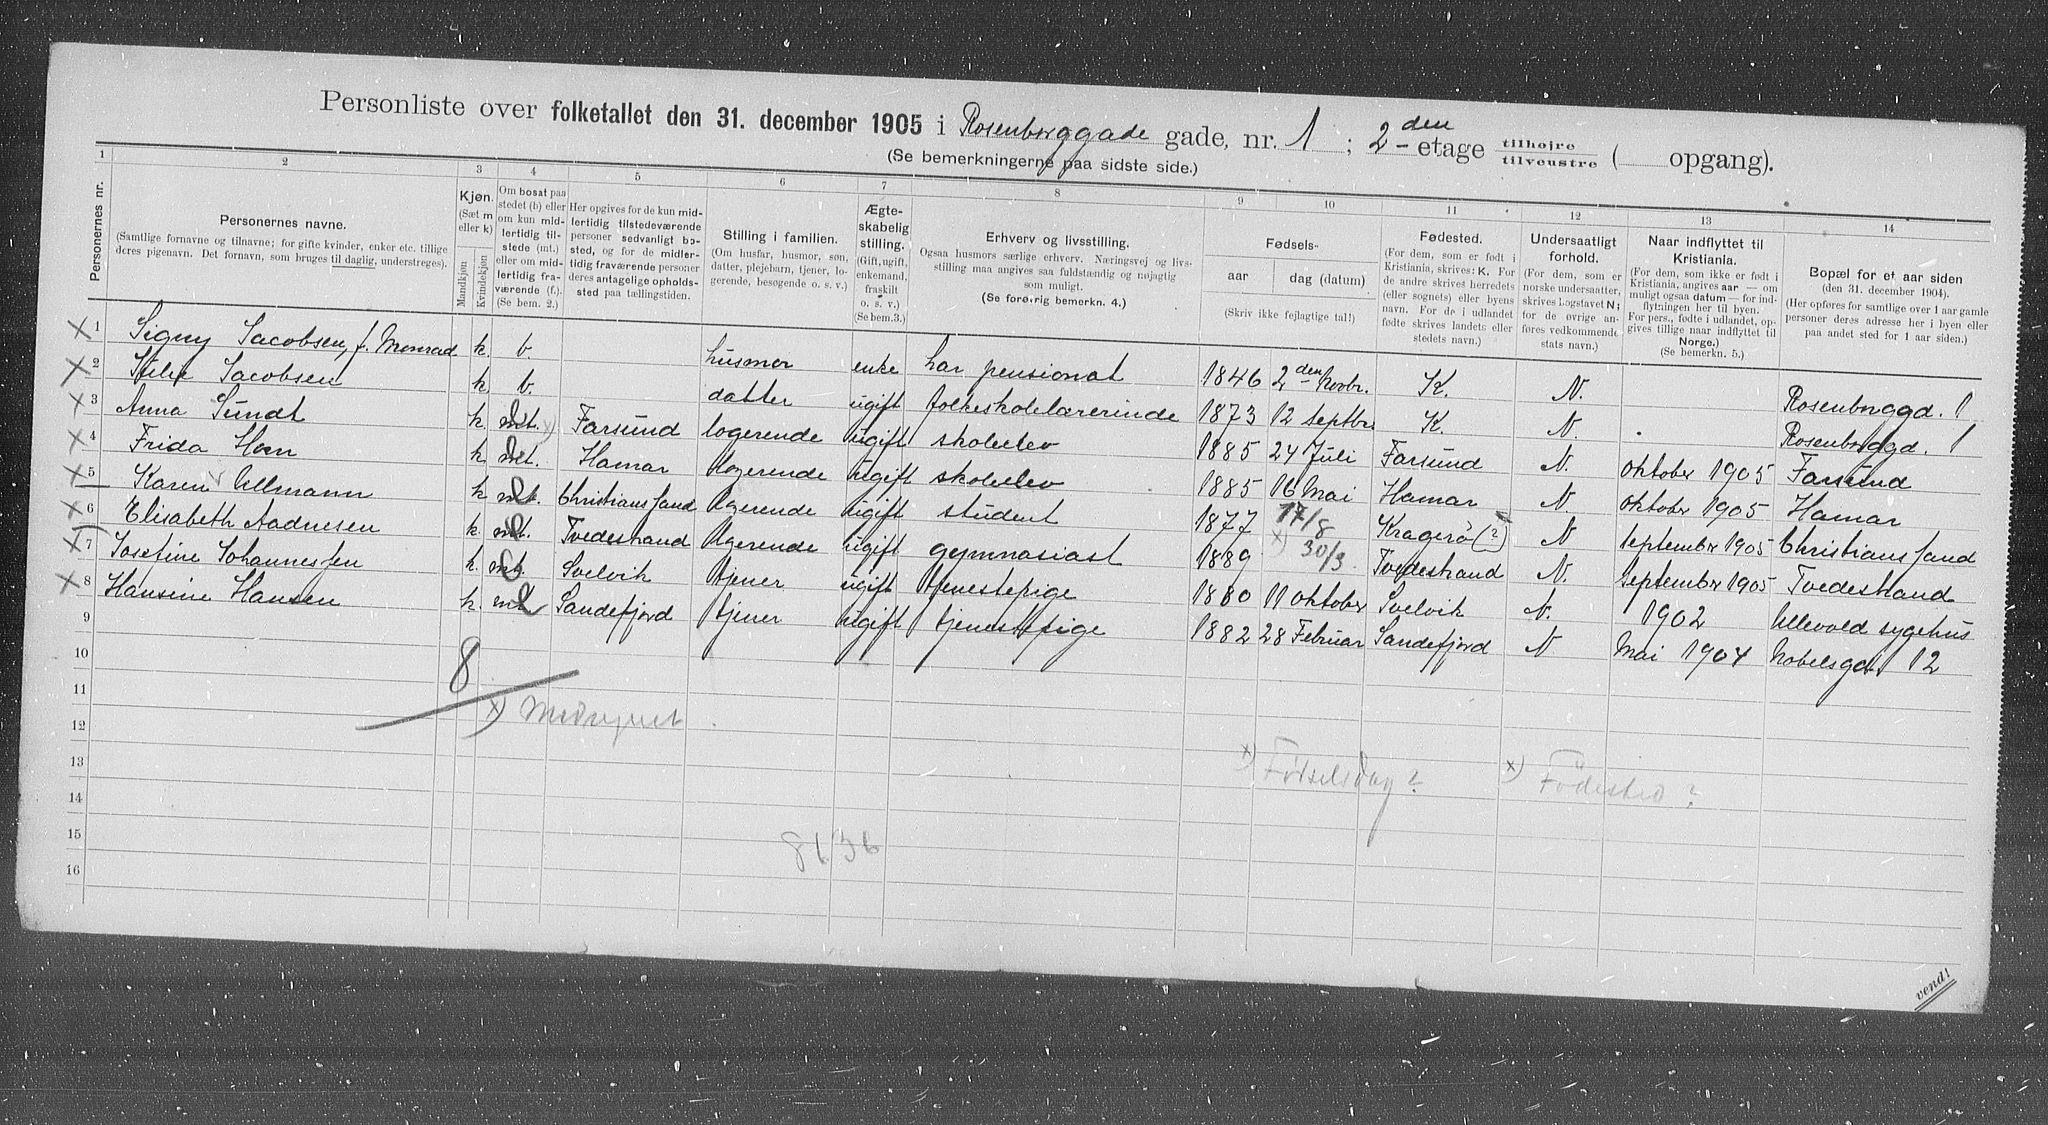 Personliste over folketallet den 31. december 1905 i Rosenborggade gade, nr. 1 ; 2den etage tilhøjre tilvenstre ( opgang).
(Se bemerkningerne paa sidste side.)
1 2 3 4 5 6 7 8 9 10 11 12 13 14
Personernes nr.
Personernes navne.
(Samtlige fornavne og tilnavne; for gifte kvinder, enker etc. tillige
deres pigenavn. Det fornavn, som bruges til daglig, understreges).
Kjøn.
(Sæt m
eller k)
Mandkjøn
Kvindekjøn
Om bosat paa
stedet (b) eller
om kun mid-
lertidig til-
stede (mt.)
eller om mid-
lertidig fra-
værende (f.).
(Se bem. 2.)
Her opgives for de kun mid-
lertidig tilstedeværende
personer sedvanligt bo-
sted, og for de midler-
tidig fraværende personer
deres antagelige opholds-
sted paa tællingstiden.
Stilling i familien.
(Om husfar, husmor, søn,
datter, plejebarn, tjener, lo-
gerende, besøgende o. s. v.)
Ægte-
skabelig
stilling.
(Gift, ugift,
enkemand,
fraskilt
o. s. v.)
(Se bem. 3.)
Erhverv og livsstilling.
Ogsaa husmors særlige erhverv. Næringsvej og livs-
stilling maa angives saa fuldstændig og nøjagtig
som muligt.
(Se forøvrig bemerkn. 4.)
Fødsels-
aar dag (datum)
(Skriv ikke fejlagtige tal!)
Fødested.
(For dem, som er født i
Kristiania, skrives: K. For
de andre skrives herredets
(eller sognets) eller byens
navn. For de i udlandet
fødte skrives landets eller
stedets navn.)
Undersaatligt
forhold.
(For dem, som er
norske undersaatter,
skrives bogstavet N;
for de øvrige an-
føres vedkommende
stats navn.)
Naar indflyttet til
Kristiania.
(For dem, som ikke er født i
Kristiania, angives aar — om
muligt ogsaa datum — for ind-
flytningen her til byen.
For pers., fødte i udlandet, op-
gives tillige naar indflyttet til
Norge.)
(Se bemerkn. 5.)
Bopæl for et aar siden
(den 31. december 1904).
(Her opføres for samtlige over 1 aar gamle
personer deres adresse her i byen eller
paa andet sted for 1 aar siden.)
1 Signy Jacobsen, f. Monrad k. b. husmor enke har pensionat 1846 2den Novbr. K. N. Rosenborggd. 1
2 Jacobsen k b. datter ugift folkeskolelærerinde 1873 12 septbr. K. N. Rosenborggd. 1
3 Anna Sundt k mt. x) Farsund logerende ugift skoleelev 1885 24 Juli Farsund N. oktober 1905 Farsund
4 Frida Horn k mt. Hamar logerende ugift skoleelev 1885 16 Mai Hamar N. oktober 1905 Hamar
5 Karen Ullmann k mt. Christianssand logerende ugift student 1877 17/8 Kragerø (?) N september 1905 Christianssand
6 Elisabeth Aadnesen k. mt. Tvedestrand logerende ugift gymnasiast 1889 x) 30/3 Tvedestrand N. september 1905 Tvedestrand
7 Josefine Johannessen k. mt. Svelvik tjener ugift tjenestepige 1880 11 oktober Svelvik N. 1902 Ullevold sygehus
8 Hansine Hansen k. mt. Sandefjord tjener ugift tjenestepige 1882 28 Februar Sandefjord N Mai 1904 Nobelsgd. 12
9
10
11
12
13
14
15
16
8
x) Medregnet.
x) Fødselsdag?
x) Fødested?
8136
vend!